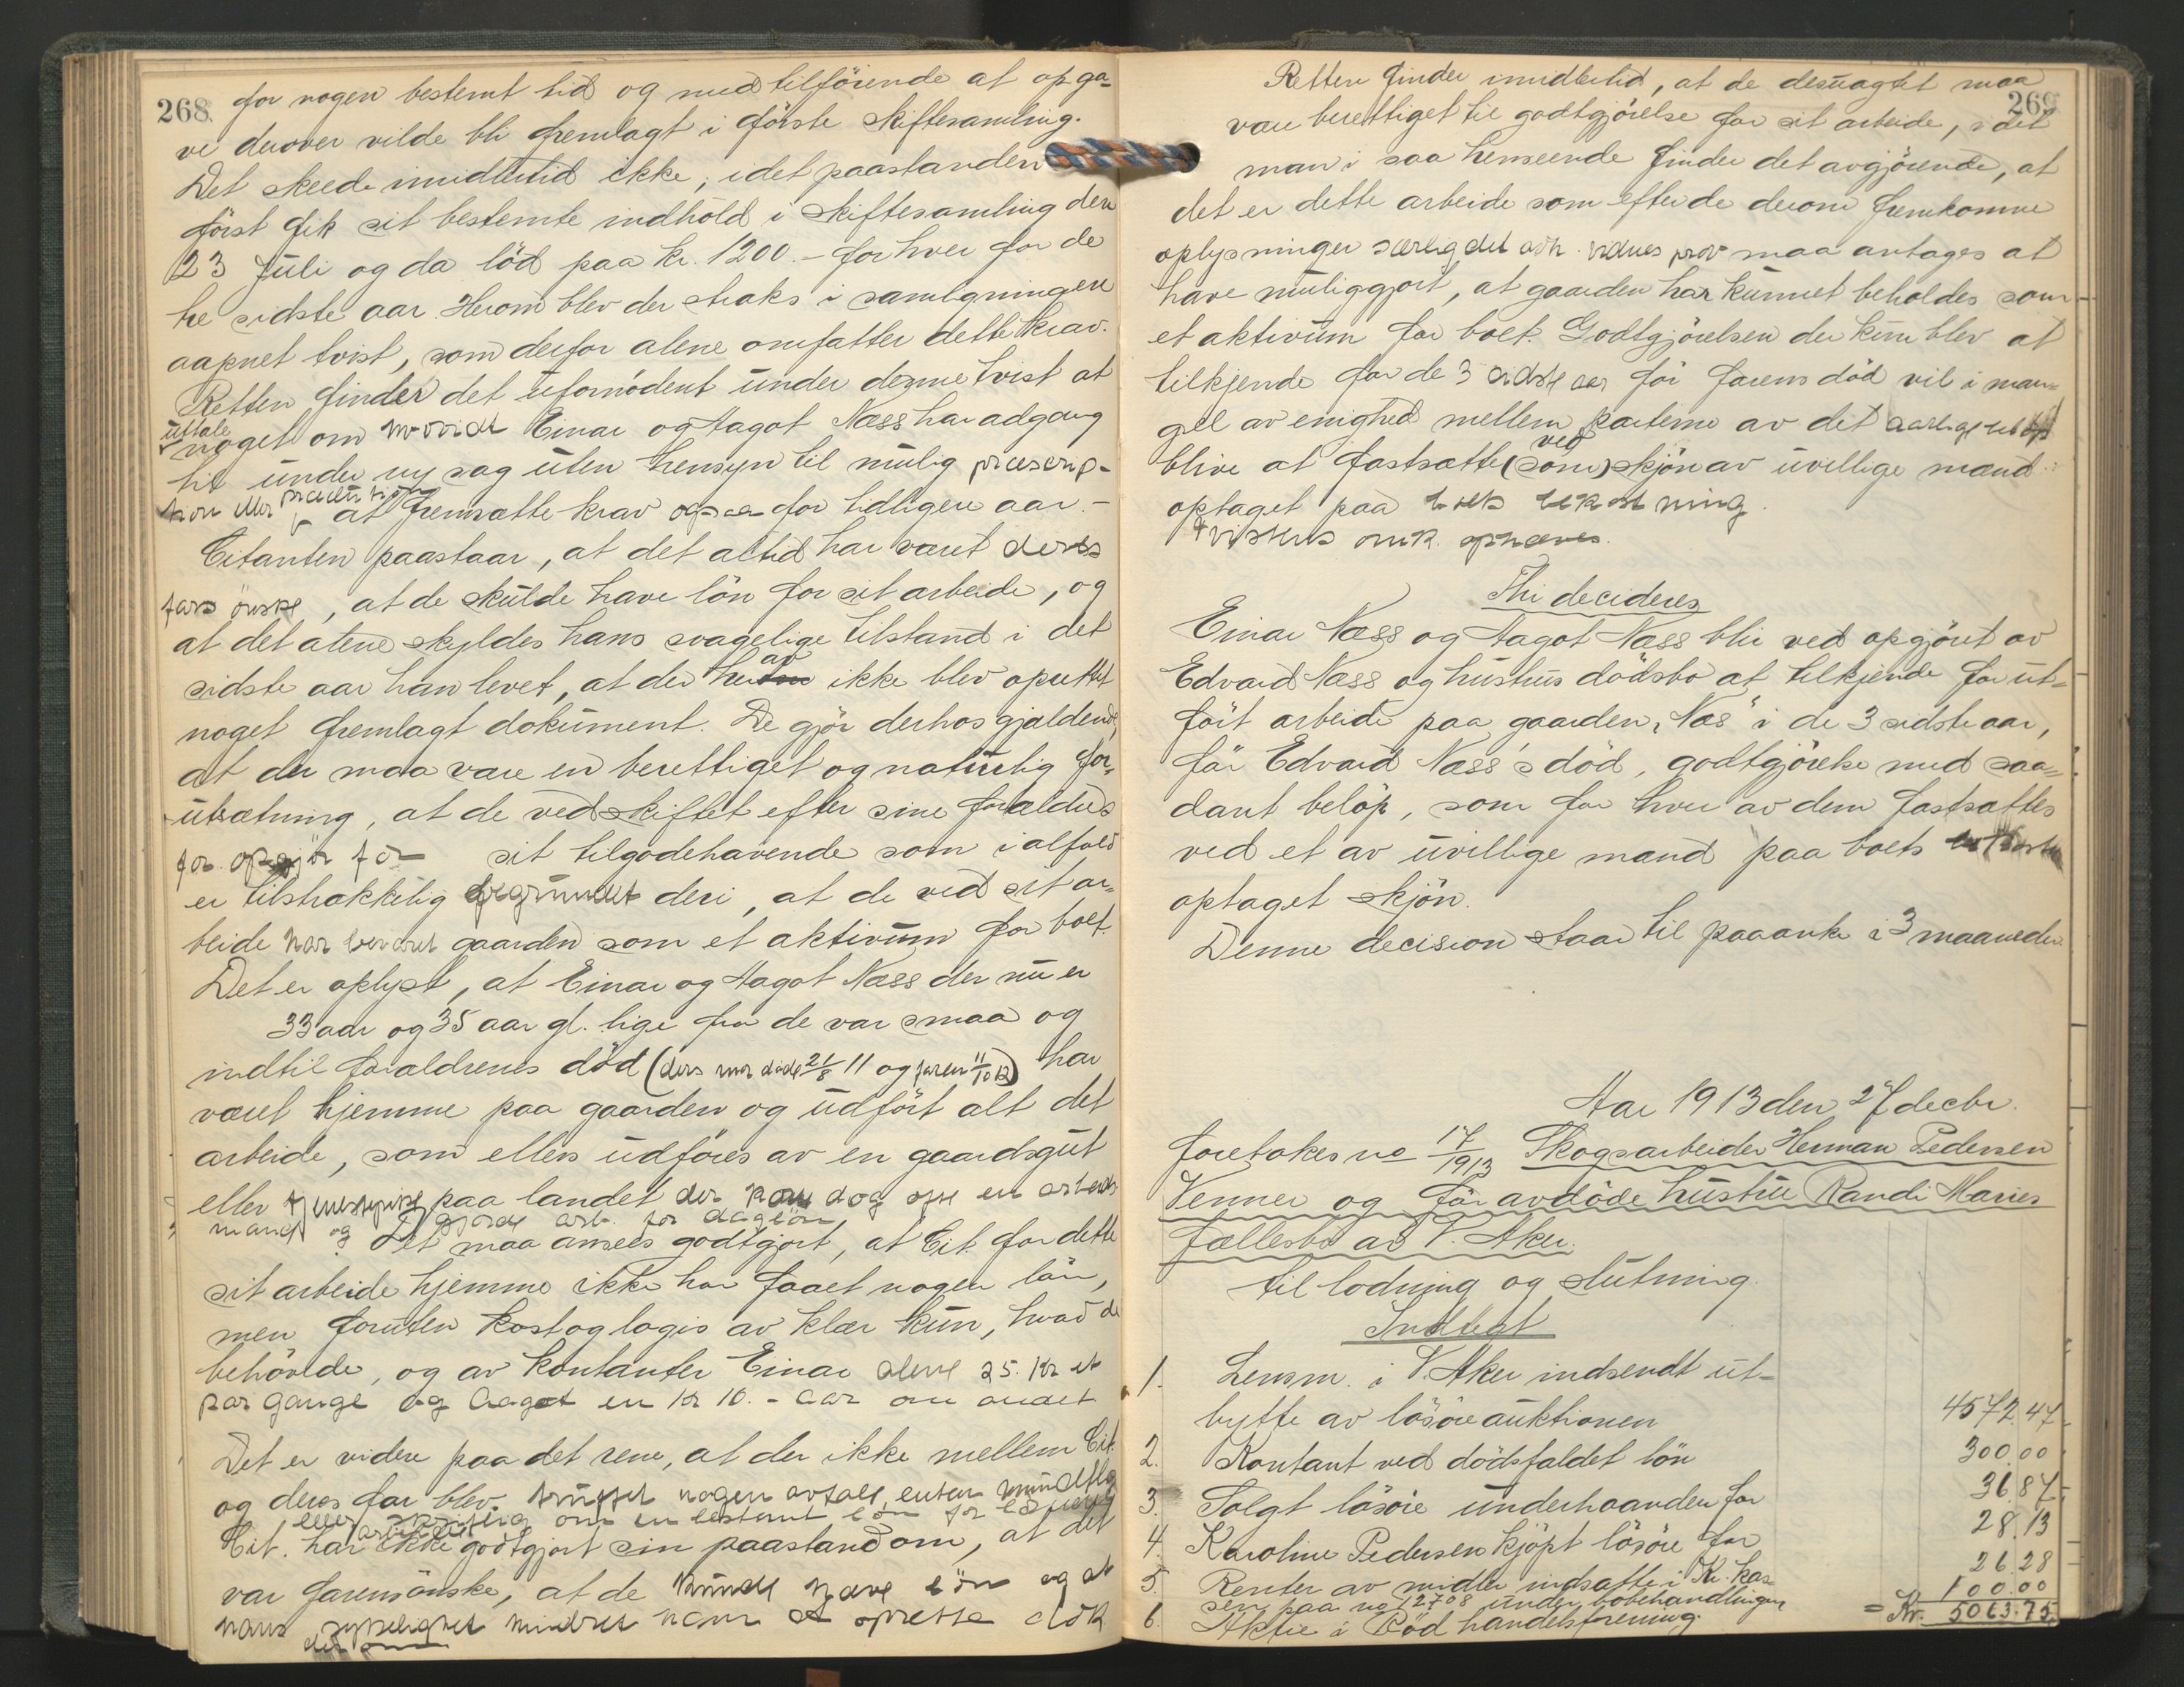 268
for nogen bestemt tid og med tilförende at opga-
ve derover vilde bli fremlagt i förste skiftesamling.
Det skede imidlertid ikke, idet paastanden
först fik sit bestemte indhold i skiftesamling den
23 Juli og da löd paa kr. 1200.- for hver for de
tre sidste aar. Herom blev der straks i samlingen
aapnet tvist, som derfor alene omfatter dette krav.
Retten finder det ufornödent under denne tvist at
uttale
noget om hvorvidt Einar og Aagot Næss har adgang
til under ny sag uten hensyn til mulig præscrip-
tion eller præclusion at fremsætte krav ogsaa for tidligere aar.-
Citanten paastaar, at det altid har været deres
fars önske, at de skulde have lön for sit arbeide, og
at det alene skyldes hans svagelige tilstand i det
sidste aar han levet, at der herav ikke blev oprettet
noget fremlagt dokument. De gjör derhos gjældende,
at der maa være en berettiget og naturlig for-
utsætning, at de ved skiftet efter sine forældre
faar opgjör for sit tilgodehavende som ialfald
er tilstrækkelig begrundet deri, at de ved sit ar-
beide har bevaret gaarden som et aktivum for boet.
Det er oplyst, at Einar og Aagot Næss der nu er
33 aar og 35 aar gl. lige fra de var smaa og
indtil forældrenes död (deres mor döde 21/8 11 og faren 11/10 12) har
været hjemme paa gaarden og udfört alt det
arbeide, som ellers udföres av en gaardsgut
eller tjenestepike paa landet der kom dog ofte en arbeids
mand og gjorde arb. for daglön
Det maa ansees godtgjort, at Cit. for dette
sit arbeide hjemme ikke har faaet nogen lön,
men foruten kost og logis av klær kun, hvad de
behövde, og av kontanter Einar alene 25. Kr et
par gange og Aagot en kr 10.- aar om andet
Det er videre paa det rene, at der ikke mellem Cit.
og deres far blev truffet nogen avtale, enten mundtlig
eller skriftlig om en bestemt lön for
arbeidet
Cit. har ikke godtgjort sin paastand om, at det
var farens önske, at de skulde have lön og at
hans sykelighet hindret ham at oprette dok
derom
269
Retten finder imidlertid, at de desuagtet maa
være berettiget til godtgjörelse for sit arbeide, idet
man i saa henseende finder det avgjörende, at
det er dette arbeide som efter de derom fremkomne
oplysninger særlig det avh. vidnes prov maa antages at
have muliggjort, at gaarden har kunnet beholdes som
et aktivum for boet. Godtgjörelsen der kun blev at
tilkjende for de 3 sidste aar för farens död vil i man-
gel av enighed mellem parterne av det aarlige belöp
ved
blive at fastsætte (som) skjön av uvillige mænd
optaget paa boets bekostning.
Tvistens omk. ophæves.
Thi decideres
Einar Næss og Aagot Næss blir ved opgjöret av
Edvard Næss og hustrus dödsbo at tilkjende for ut-
fört arbeide paa gaarden "Næs" i de 3 sidste aar,
för Edvard Næss's död, godtgjörelse med saa-
dant belöp, som for hver av dem fastsættes
ved et av uvillige mænd paa boets
optaget skjön.
Denne decision staar til paaanke i 3 maaneder
Aar 1913 den 27 decbr.
foretokes no 17/1913 Skogsarbeider Herman Pedersen
Venner og för avdöde hustru Randi Maries
fællesbo av V. Aker.
til lodning og slutning.
Indtægt
1. Lensm. i V. Aker indsendt ut-
bytte av lösöreauktionen 4572.47
2. Kontant ved dödsfaldet lön 300.00
3. Solgt lösöre underhaanden for 36.87
4. Karoline Pedersen kjöpt lösöre for 28.13
5. Renter av midler indsatte i Kr. kas-
sen paa no 12708 under bobehandlingen 26.28
6. Aktie i Röd handelsforening. 100.00
= Kr. 5063.75